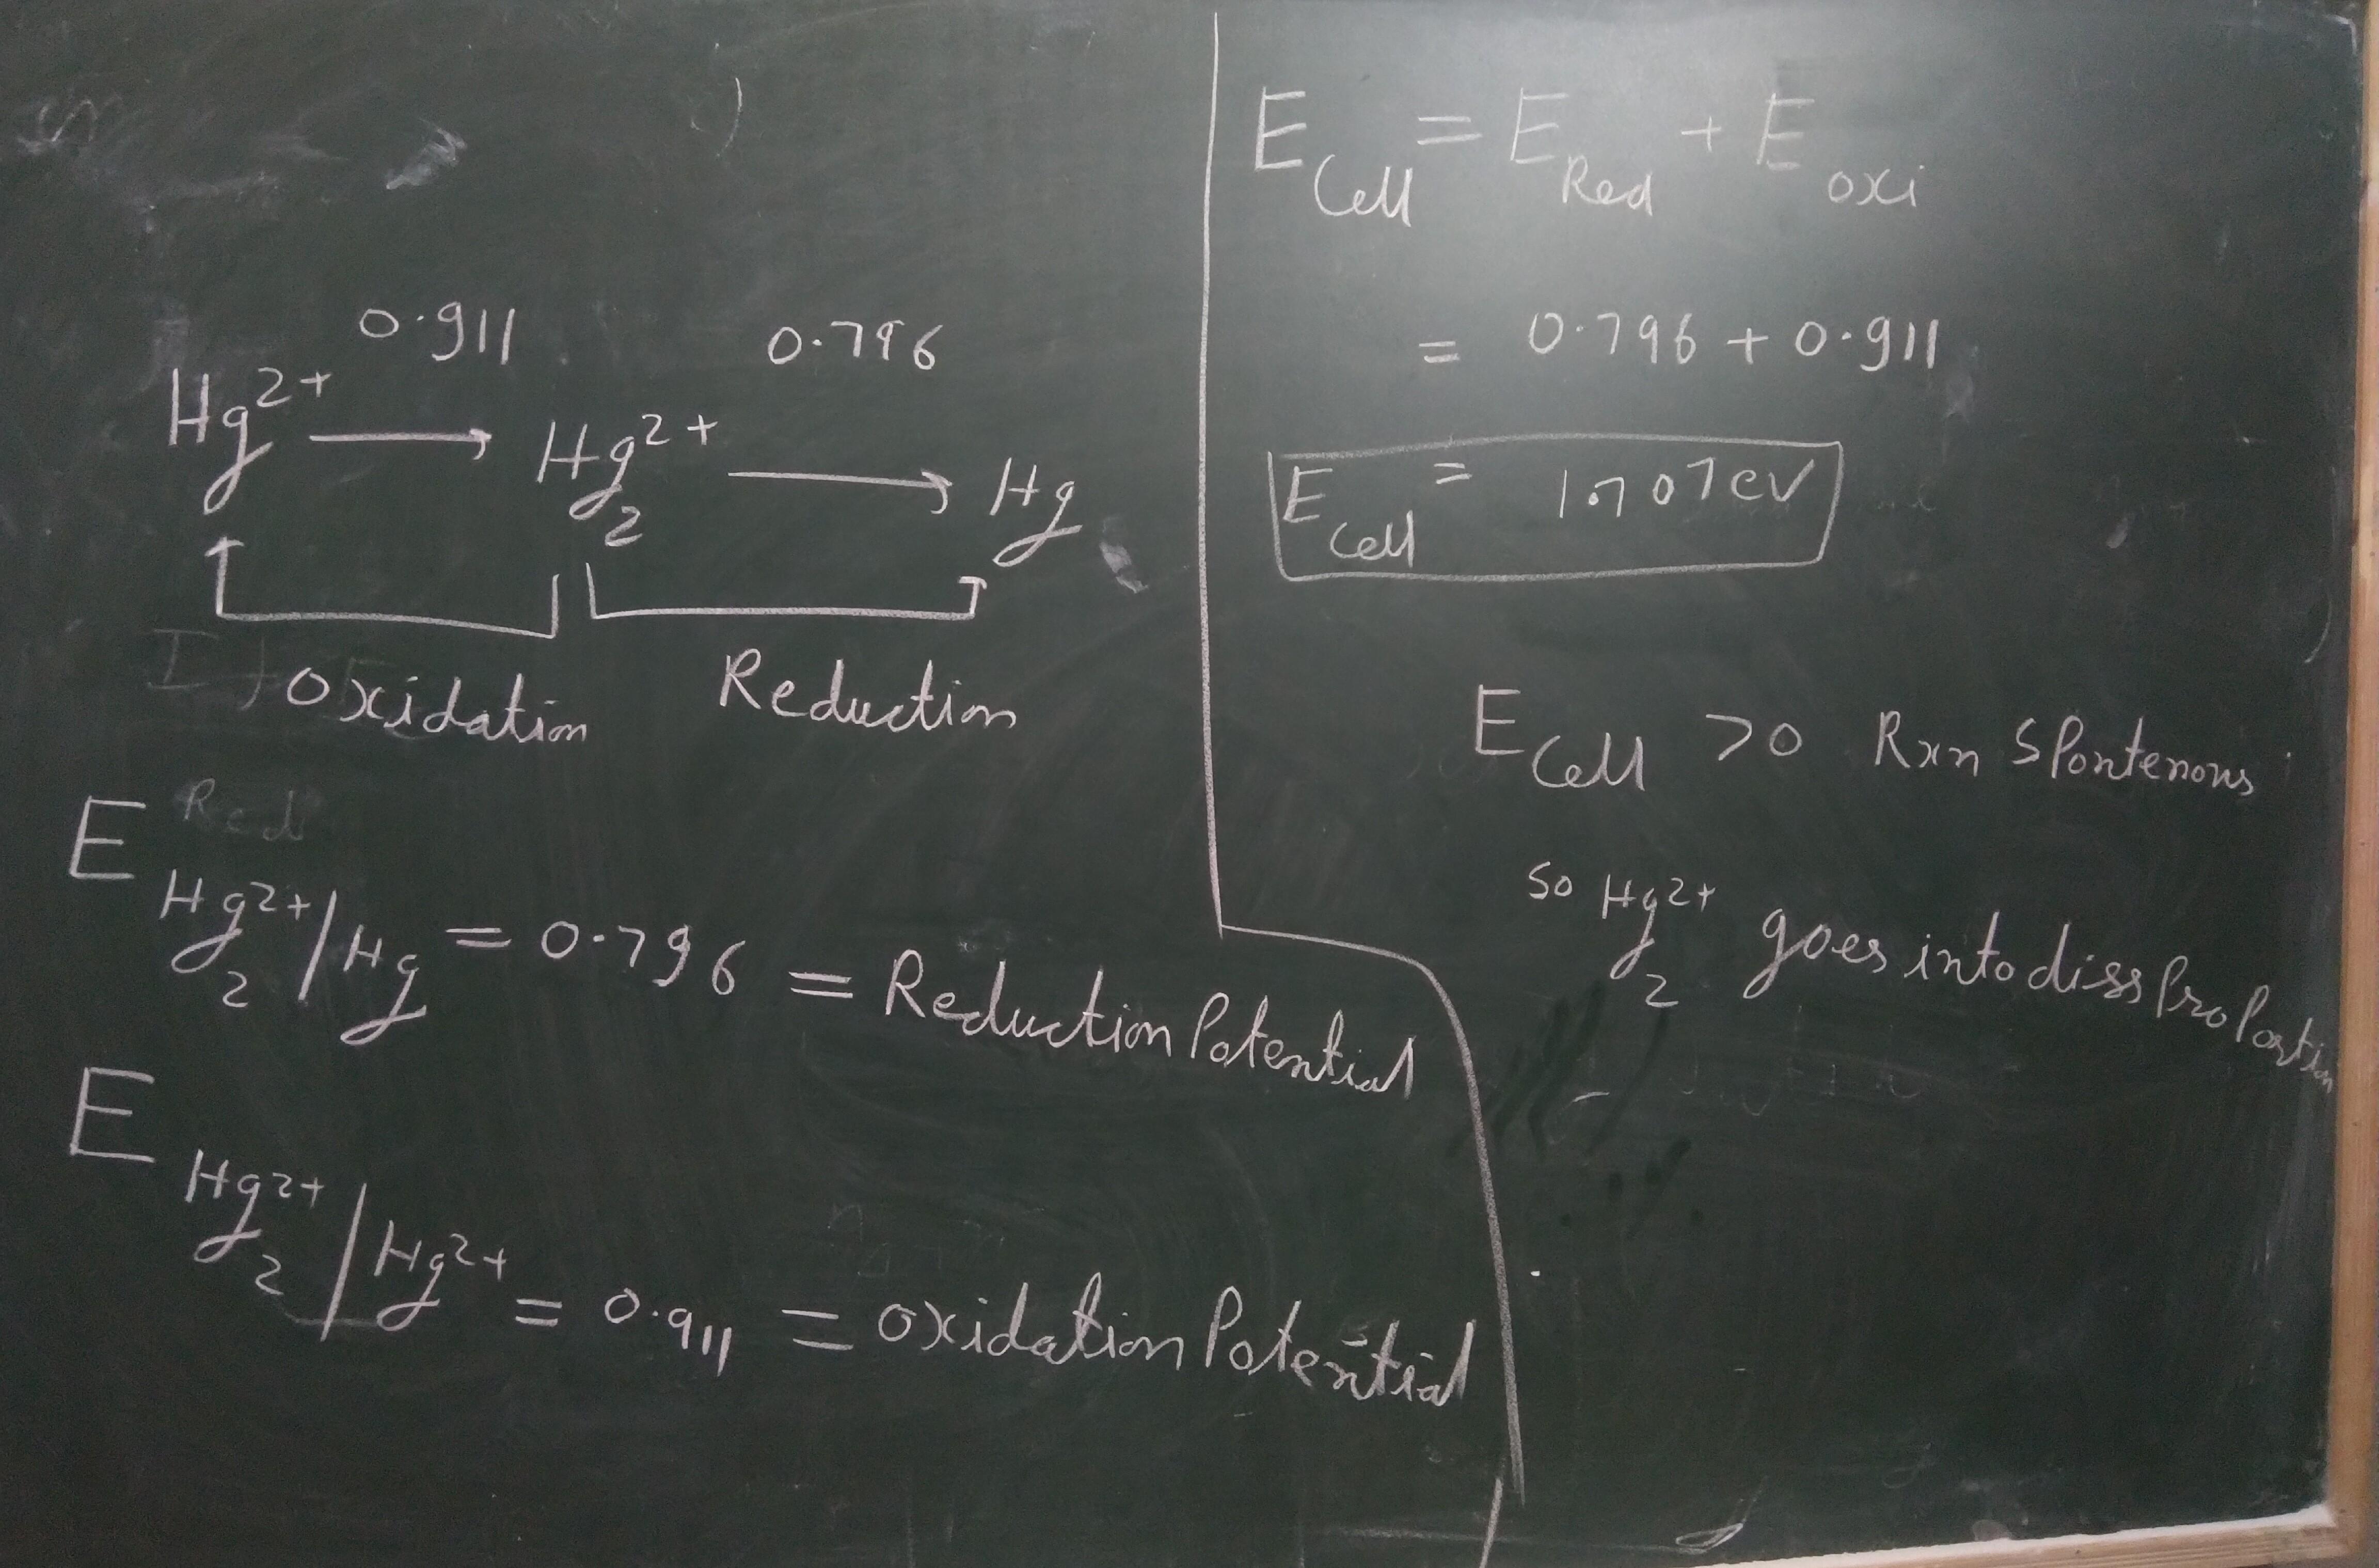 0.911 0.796
Hg²⁺ ⟶ Hg₂²⁺ ⟶ Hg
Oxidation Reduction
E Red Hg₂²⁺/Hg = 0.796 = Reduction Potential
E Hg₂²⁺/Hg²⁺ = 0.911 = oxidation Potential
E Cell = E Red + E oxi
= 0.796 + 0.911
E Cell = 1.707 eV
E Cell >0 Rxn Spontenous
so Hg₂²⁺ goes into dissproportin